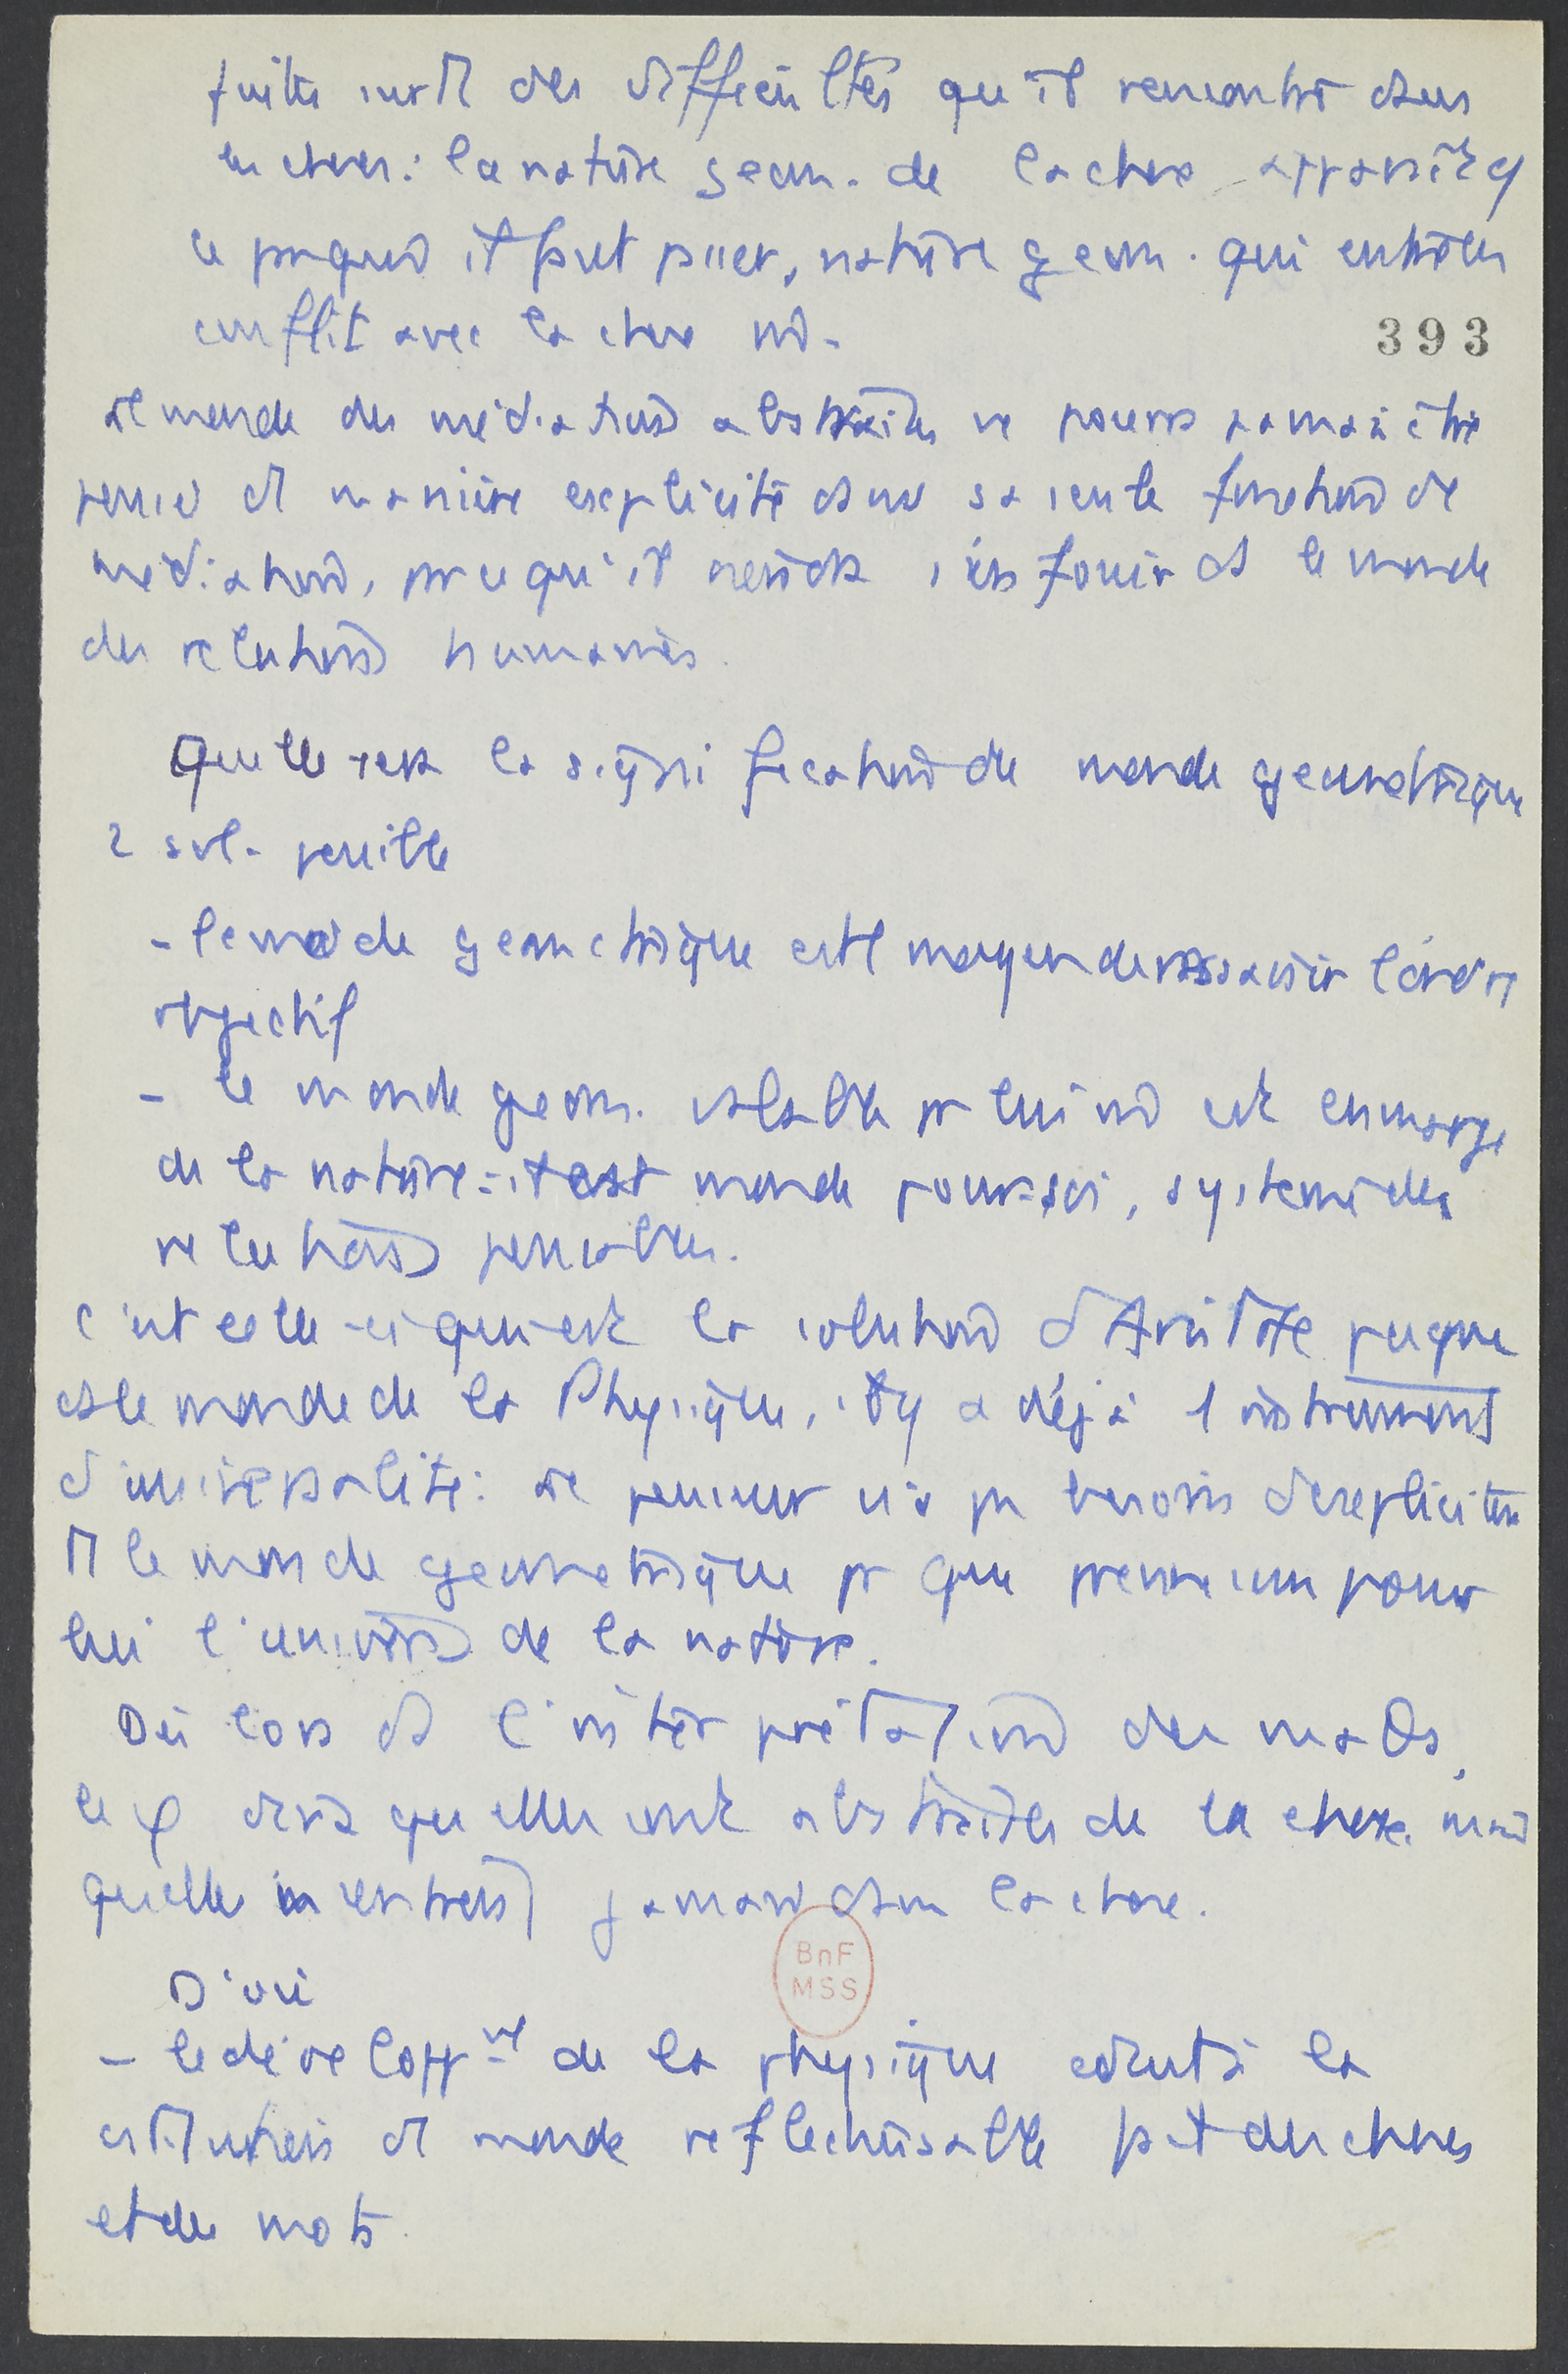 des difficultés qu'il rencontre dans
les choses : la nature geom. de la chose
ce pourquoi il faut passer, nature geom. qui entre en
conflit avec la chose
393
le monde des médiations abstraites ne pourra jamais être
pensé de manière explicite dans sa seule fonction de
médiation, pr ce qu'il le monde
des relations humaines.
Quelle sera la signification du monde géometrique
2 sol. possible
- le monde geometrique est le moyen de ressaisir l'ordre
objectif
- le monde geom. valable pr lui est en marge
de la nature : il est monde pour soi, système des
relations pensables.
c'est celle-ci qui est la solution d'Aristote puisque
ds le monde de la Physique, il y a déjà 1 instrument
d'universalité : le penseur n'a pas besoin d'expliciter
le monde géometrique pr que pour
lui l'univers de la nature.
Dès lors ds l'interprétation des maths,
le φ dira qu'elles sont abstraites de la chose mais
qu'elles n'entrent jamais dans la chose.
D'où
- le développ^mt de la physique à la
de monde réfléchissable des choses
et des mots.
BnF
MSS